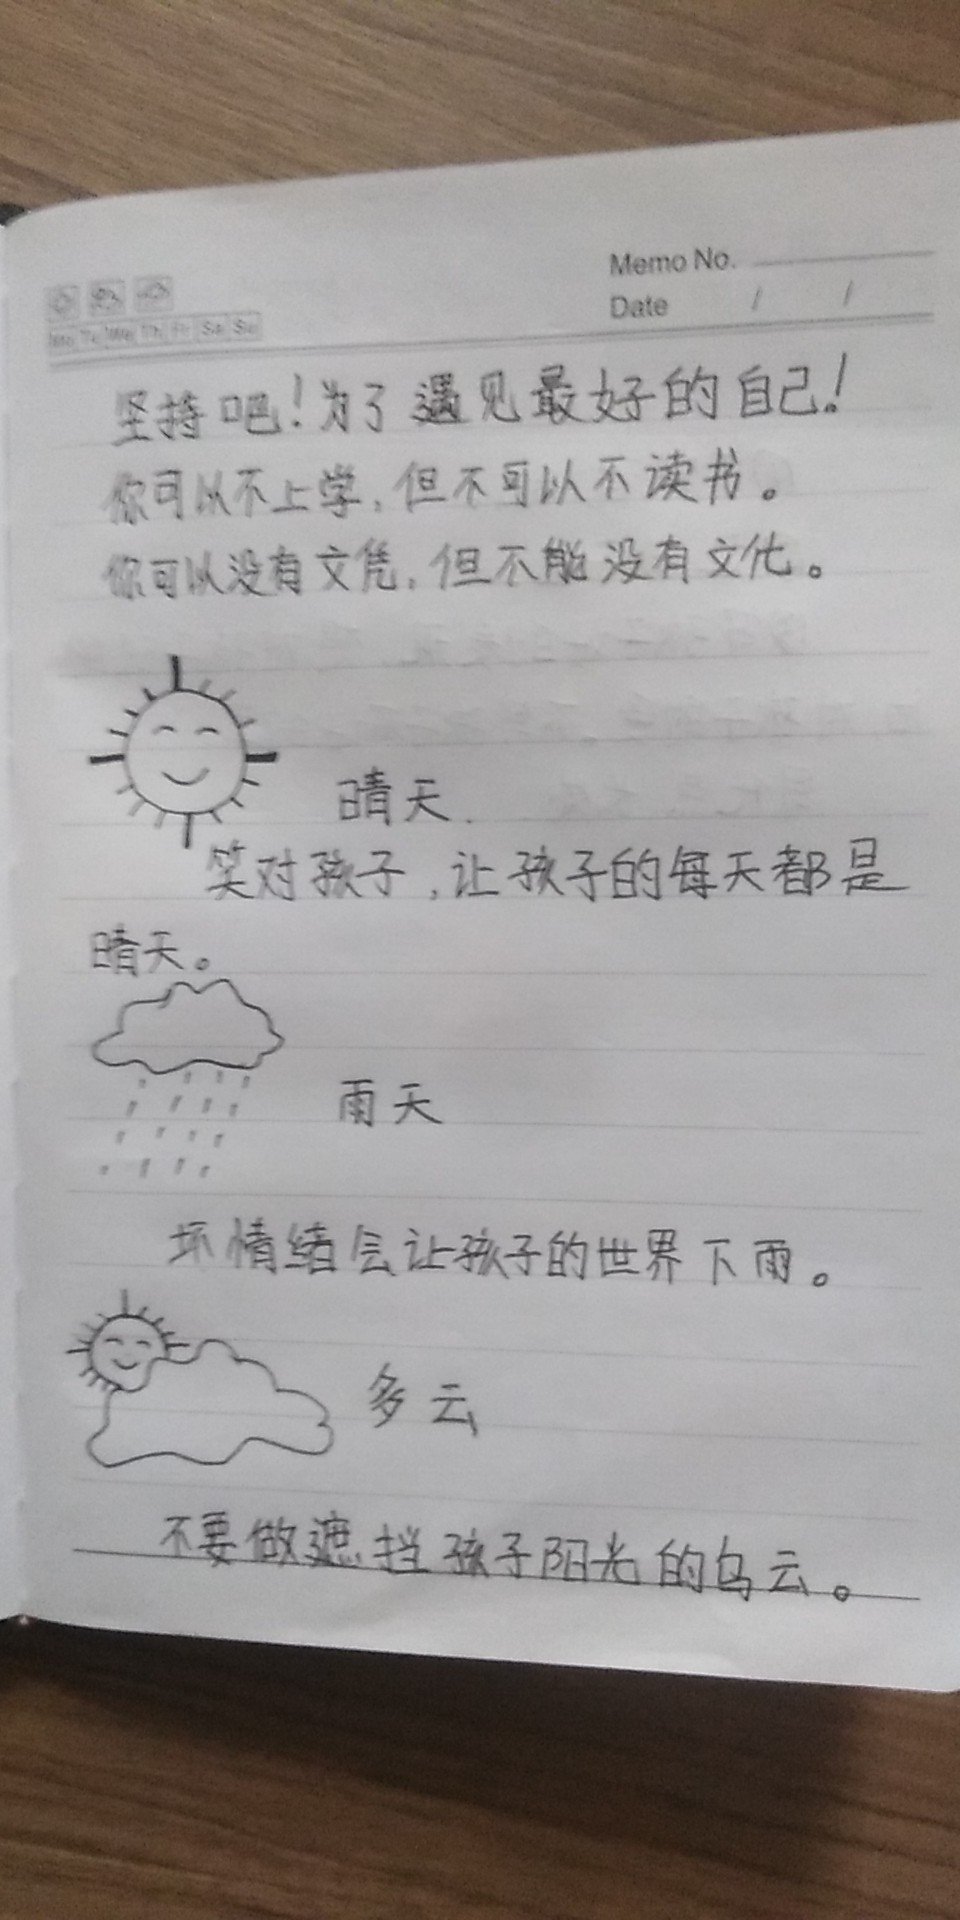 Memo No.
Date / /
Mo Tu We Th Fr Sa Su
坚持吧！为了遇见最好的自己！
你可以不上学，但不可以不读书。
你可以没有文凭，但不能没有文化。
晴天.
笑对孩子，让孩子的每天都是
晴天。
雨天
坏情绪会让孩子的世界下雨。
多云
不要做遮挡孩子阳光的乌云。